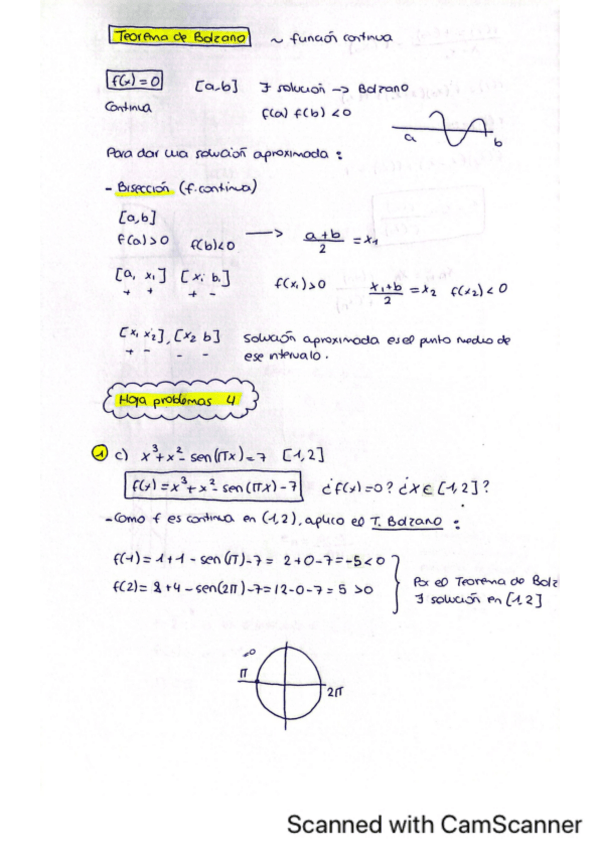 Teorema de Bolzano ~ función continua
f(x)=0 [a,b] ∃ solución -> Bolzano
Continua f(a) f(b) <0
a b
Para dar una solución aproximada :
- Bisección (f. continua)
[a,b]
f(a)>0 f(b)<0 -> a+b/2 = x1
[a, x1] [x1 b.] f(x1)>0 x1+b/2 = x2 f(x2)<0
+ + + -
[x1 x2], [x2 b] solución aproximada es el punto medio de
+ - - - ese intervalo.
Hoja problemas 4
1 c) x³+x²- sen(πx)=7 [1,2]
f(x)=x³+x²- sen(πx)-7 ¿f(x)=0? ¿x∈[1,2]?
- Como f es continua en (1,2), aplico el T. Bolzano :
f(1)=1+1-sen(π)-7= 2+0-7=-5<0
f(2)= 8+4-sen(2π)-7=12-0-7= 5 >0
Por el Teorema de Bolz
∃ solución en [1,2]
π 2π
Scanned with CamScanner